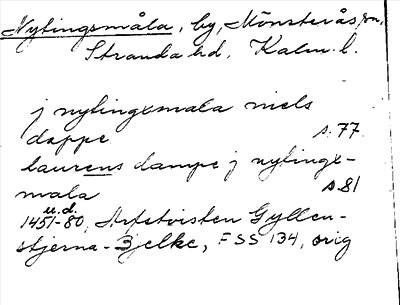 Nytingsmåla, by, Mönsterås sn,
Stranda hd, Kalm. l.
j nytingxmala niels
dappe s. 77
laurens dampe j nytinge-
mala s. 81
u.d.
1451-80, Arfstvisten Gyllen-
stjerna-Bjelke, FSS 134, orig